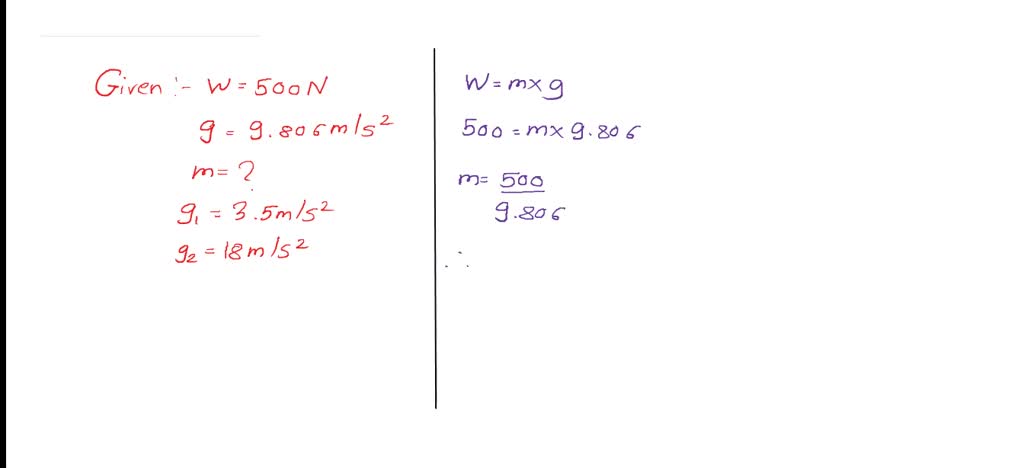 Given :- W = 500N
g = 9.806m/s²
m = ?
g₁ = 3.5m/s²
g₂ = 18m/s²
W = m×g
500 = m× 9.806
m= 500
9.806
∴